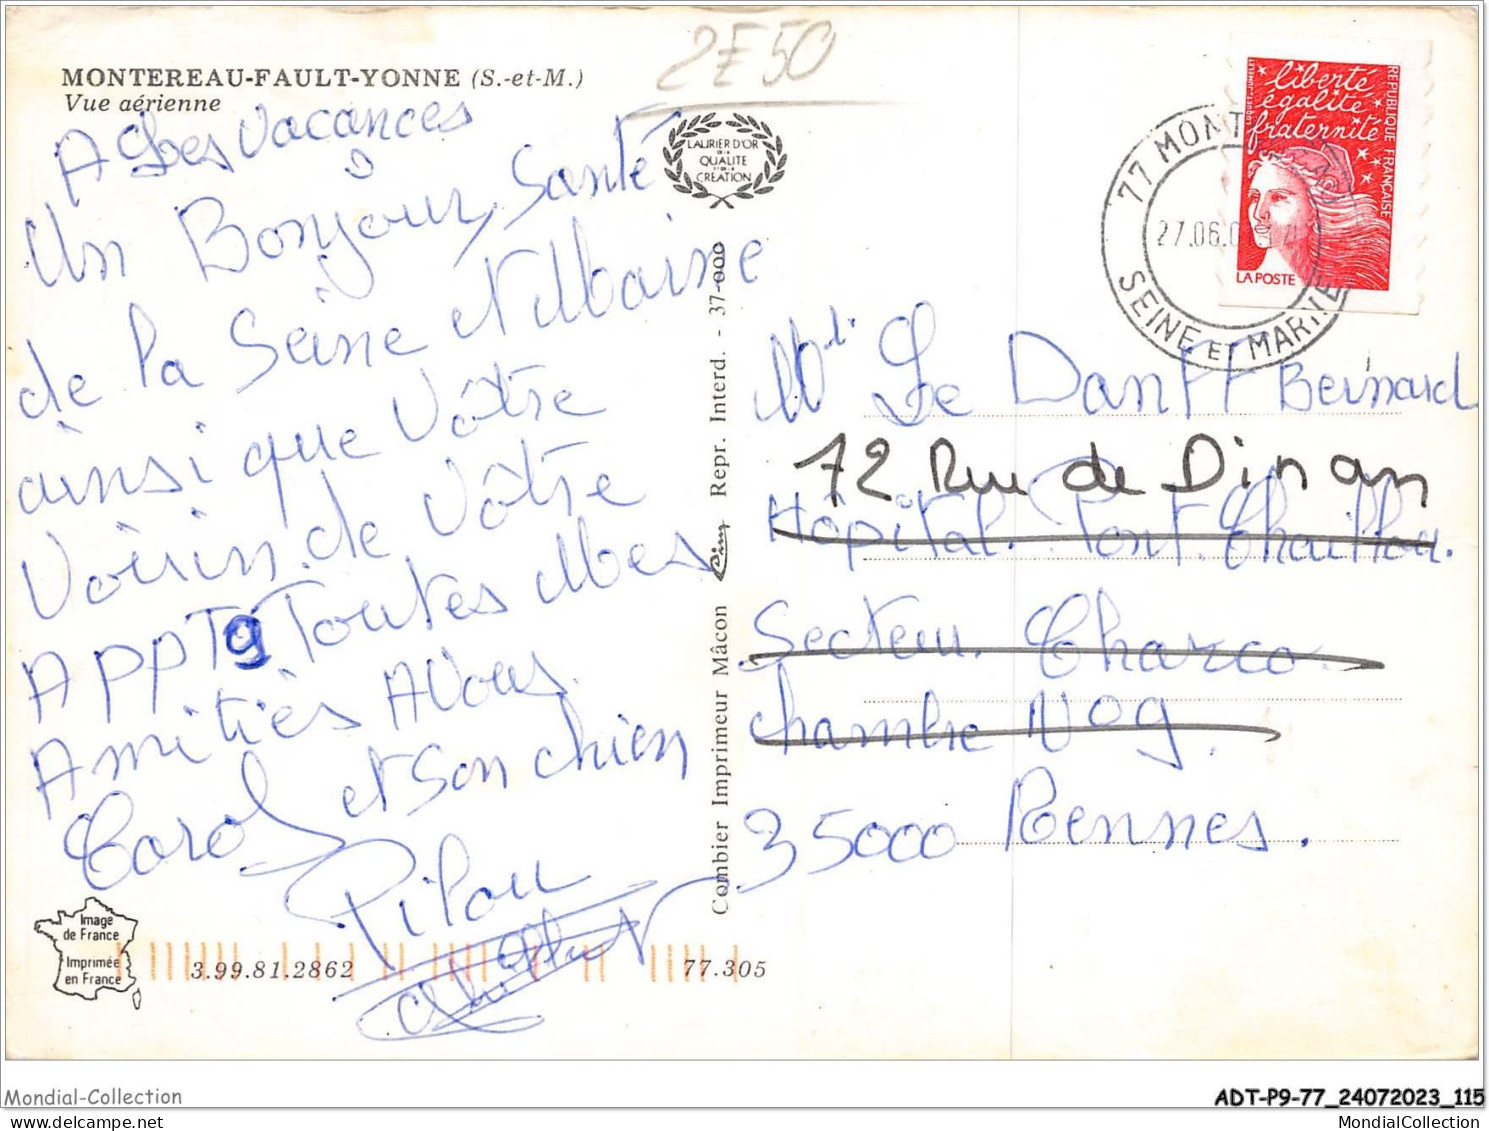 2E50
MONTEREAU-FAULT-YONNE (S.-et-M.)
Vue aérienne
A Les Vacances
Un Bonjour, Santé
de la Seine et Marne
ainsi que Vôtre
Voisin de Vôtre
Appt 9 Toutes Mes
Amitiès A Vous
et Son chien
Carol
Pilou
LAURIER D'OR
DE LA
QUALITE
ET DE LA
CREATION
Combier Imprimeur Mâcon Cim Repr. Interd. - 37-000
77 MONT
27.06.0
SEINE ET MARNE
liberté
égalité
fraternité
REPUBLIQUE FRANÇAISE
LA POSTE
Le Danff Bernard
12 Rue de Dinan
Hôpital Pont Chaillou.
Secteur Charco
chambre N09.
35000 Rennes.
Image
de France
Imprimée
en France
3.99.81.2862
77.305
Mondial-Collection
ADT-P9-77_24072023_115
MondialCollection